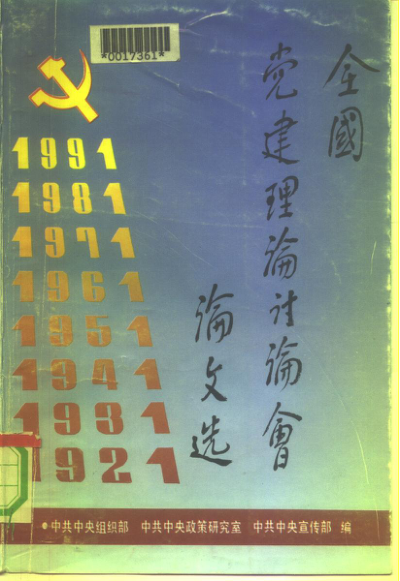 *0017361*
全國
党建理論討論會
論文选
1991
1981
1971
1961
1951
1941
1931
1921
•中共中央组织部 中共中央政策研究室 中共中央宣传部 编